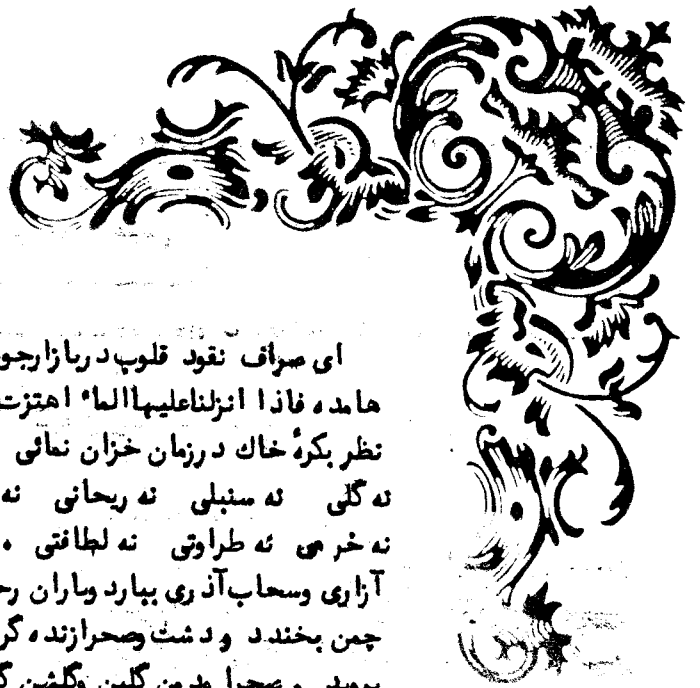 ای صراف نقود قلوب در بازار
هامده فاذا انزلنا علیها الماء اهتزت
نظر بکرهٔ خاک در زمان خزان نمائی
نه گلی نه سنبلی نه ریحانی نه
نه خرمی نه طراوتی نه لطافتی
آزاری و سحاب آذری ببارد و باران
چمن بخندد و دشت و صحرا زنده